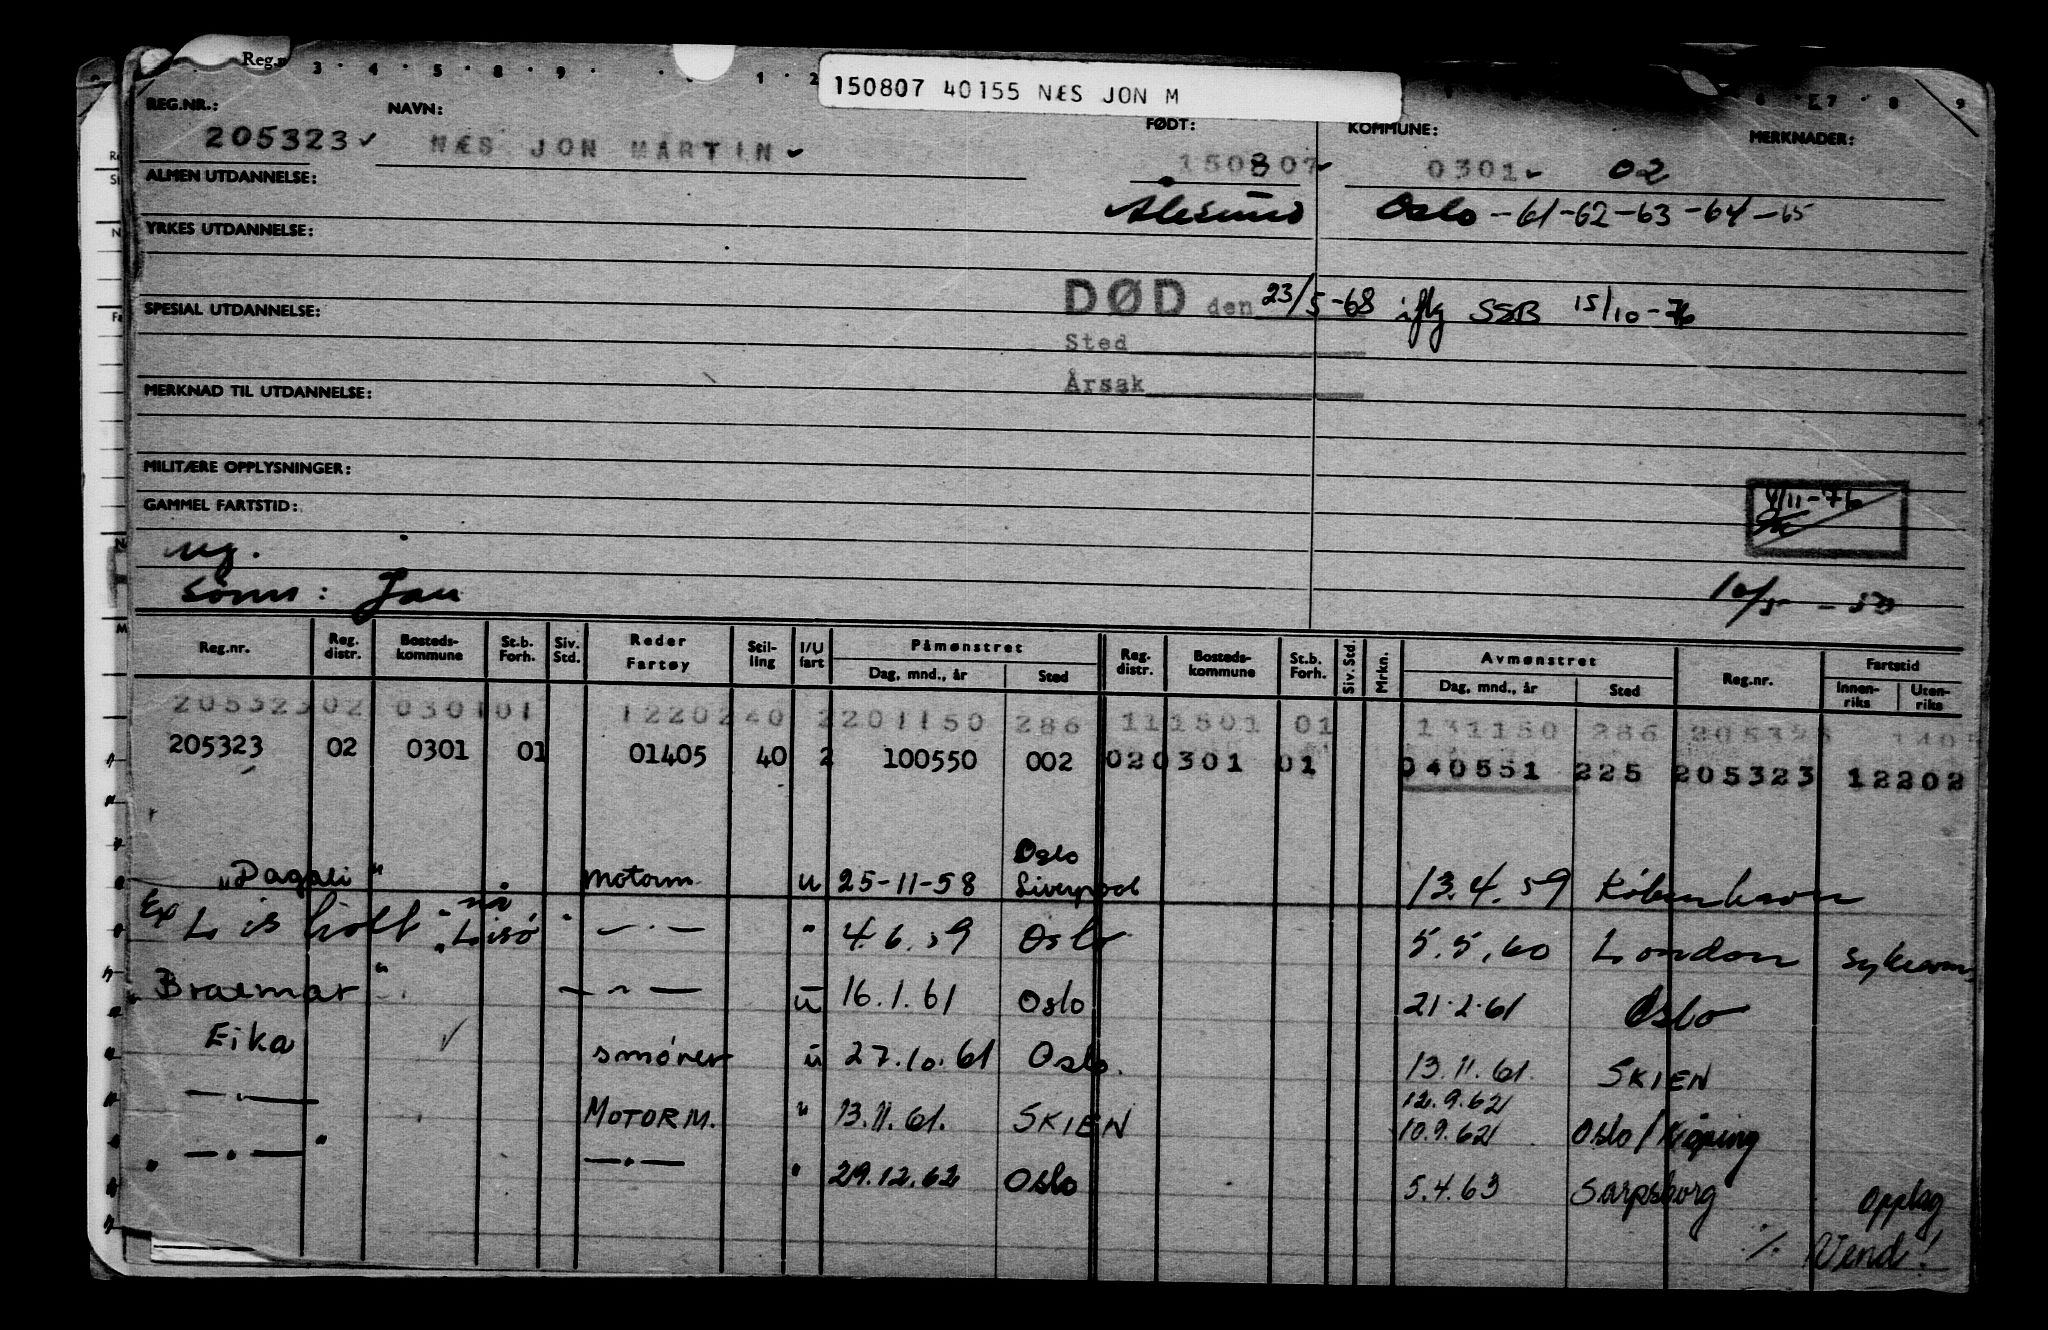 Reg.n 3 · 4 · 5 · 8 · 9 · 1 · 2 7 · 8 9
150807 40155 NÆS JON M
REG.NR.: NAVN: FØDT: KOMMUNE: MERKNADER:
205323 ✓ NÆS JON MARTIN 150807 0301 02
ALMEN UTDANNELSE: Ålesund Oslo -61-62-63-64-65
YRKES UTDANNELSE:
SPESIAL UTDANNELSE: DØD den 23/5-68 iflg SSB 15/10-76
Sted
Årsak
MERKNAD TIL UTDANNELSE:
MILITÆRE OPPLYSNINGER:
GAMMEL FARTSTID: 4/11-76
ug.
Sønn: Jan 10/5-50
Reg.nr. Reg. distr. Bosteds-kommune St.b. Forh. Siv. Std. Reder Fartøy Stil-ling I/U fart Påmønstret Dag, mnd., år Sted Reg. distr. Bosteds-kommune St.b. Forh. Siv. Std. Mrkn. Avmønstret Dag, mnd., år Sted Reg.nr. Fartstid Innen-riks Uten-riks
205323 02 0301 01 12202 40 2 201150 286 111501 01 131150 286 205323
205323 02 0301 01 01405 40 2 100550 002 020301 01 040551 225 205323 12202
"Dagali" Motorm u 25-11-58 Oslo Liverpool 13.4.59 København
Ex Lisholt nå "Lisø" — · — " 4.6.59 Oslo 5.5.60 London
"Braemar" — ~ — u 16.1.61 Oslo 21.2.61 Oslo
Eika ✓ smører u 27.10.61 Oslo. 13.11.61. SKIEN
— · — MOTORM. " 13.11.61. SKIEN 12.9.62 10.9.62 Oslo / Køping
— · — — · — " 29.12.62 Oslo 5.4.63 Sarpsborg Opplag
./. Vend!